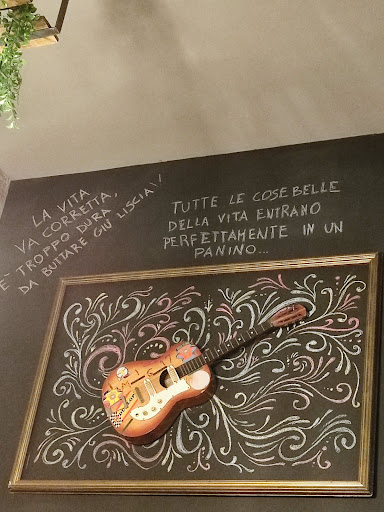 LA VITA
VA CORRETTA,
E' TROPPO DURA
DA BUTTARE GIÙ LISCIA!!
TUTTE LE COSE BELLE
DELLA VITA ENTRANO
PERFETTAMENTE IN UN
PANINO...